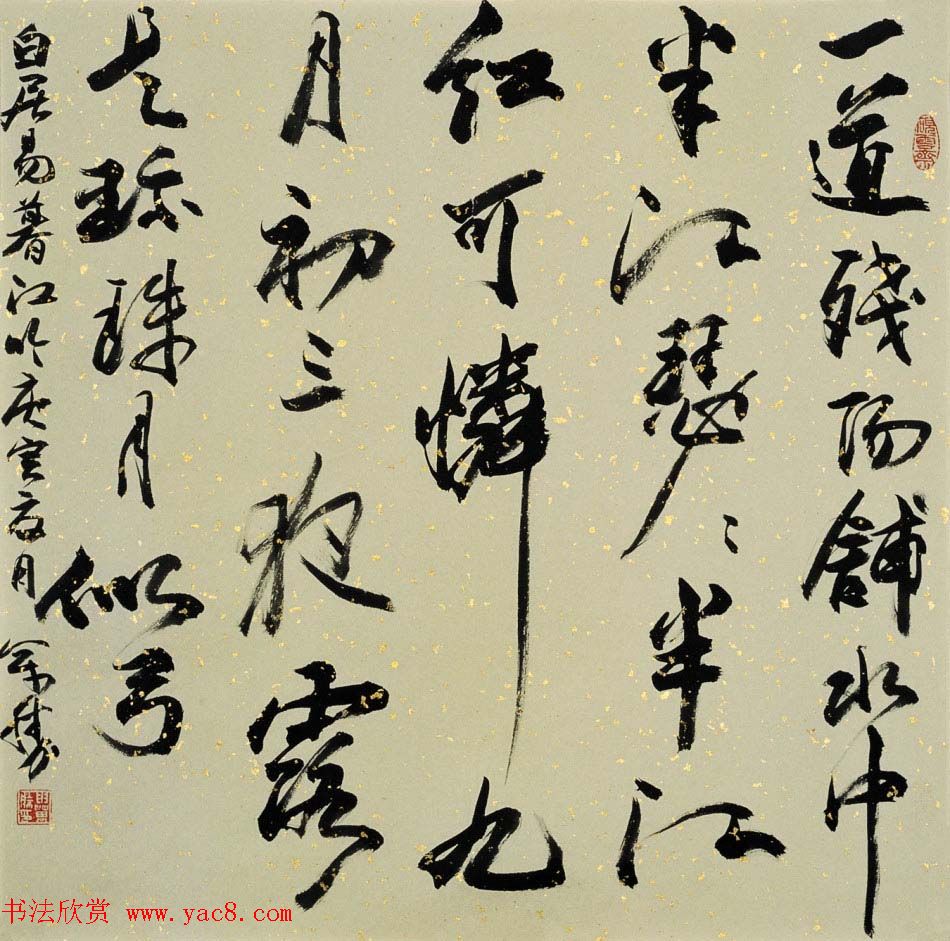 一道殘陽舖水中
半江瑟〻半江
紅可憐九
月初三夜露
是珍珠月似弓
白居易暮江吟庚寅夏月
书法欣赏 www.yac8.com